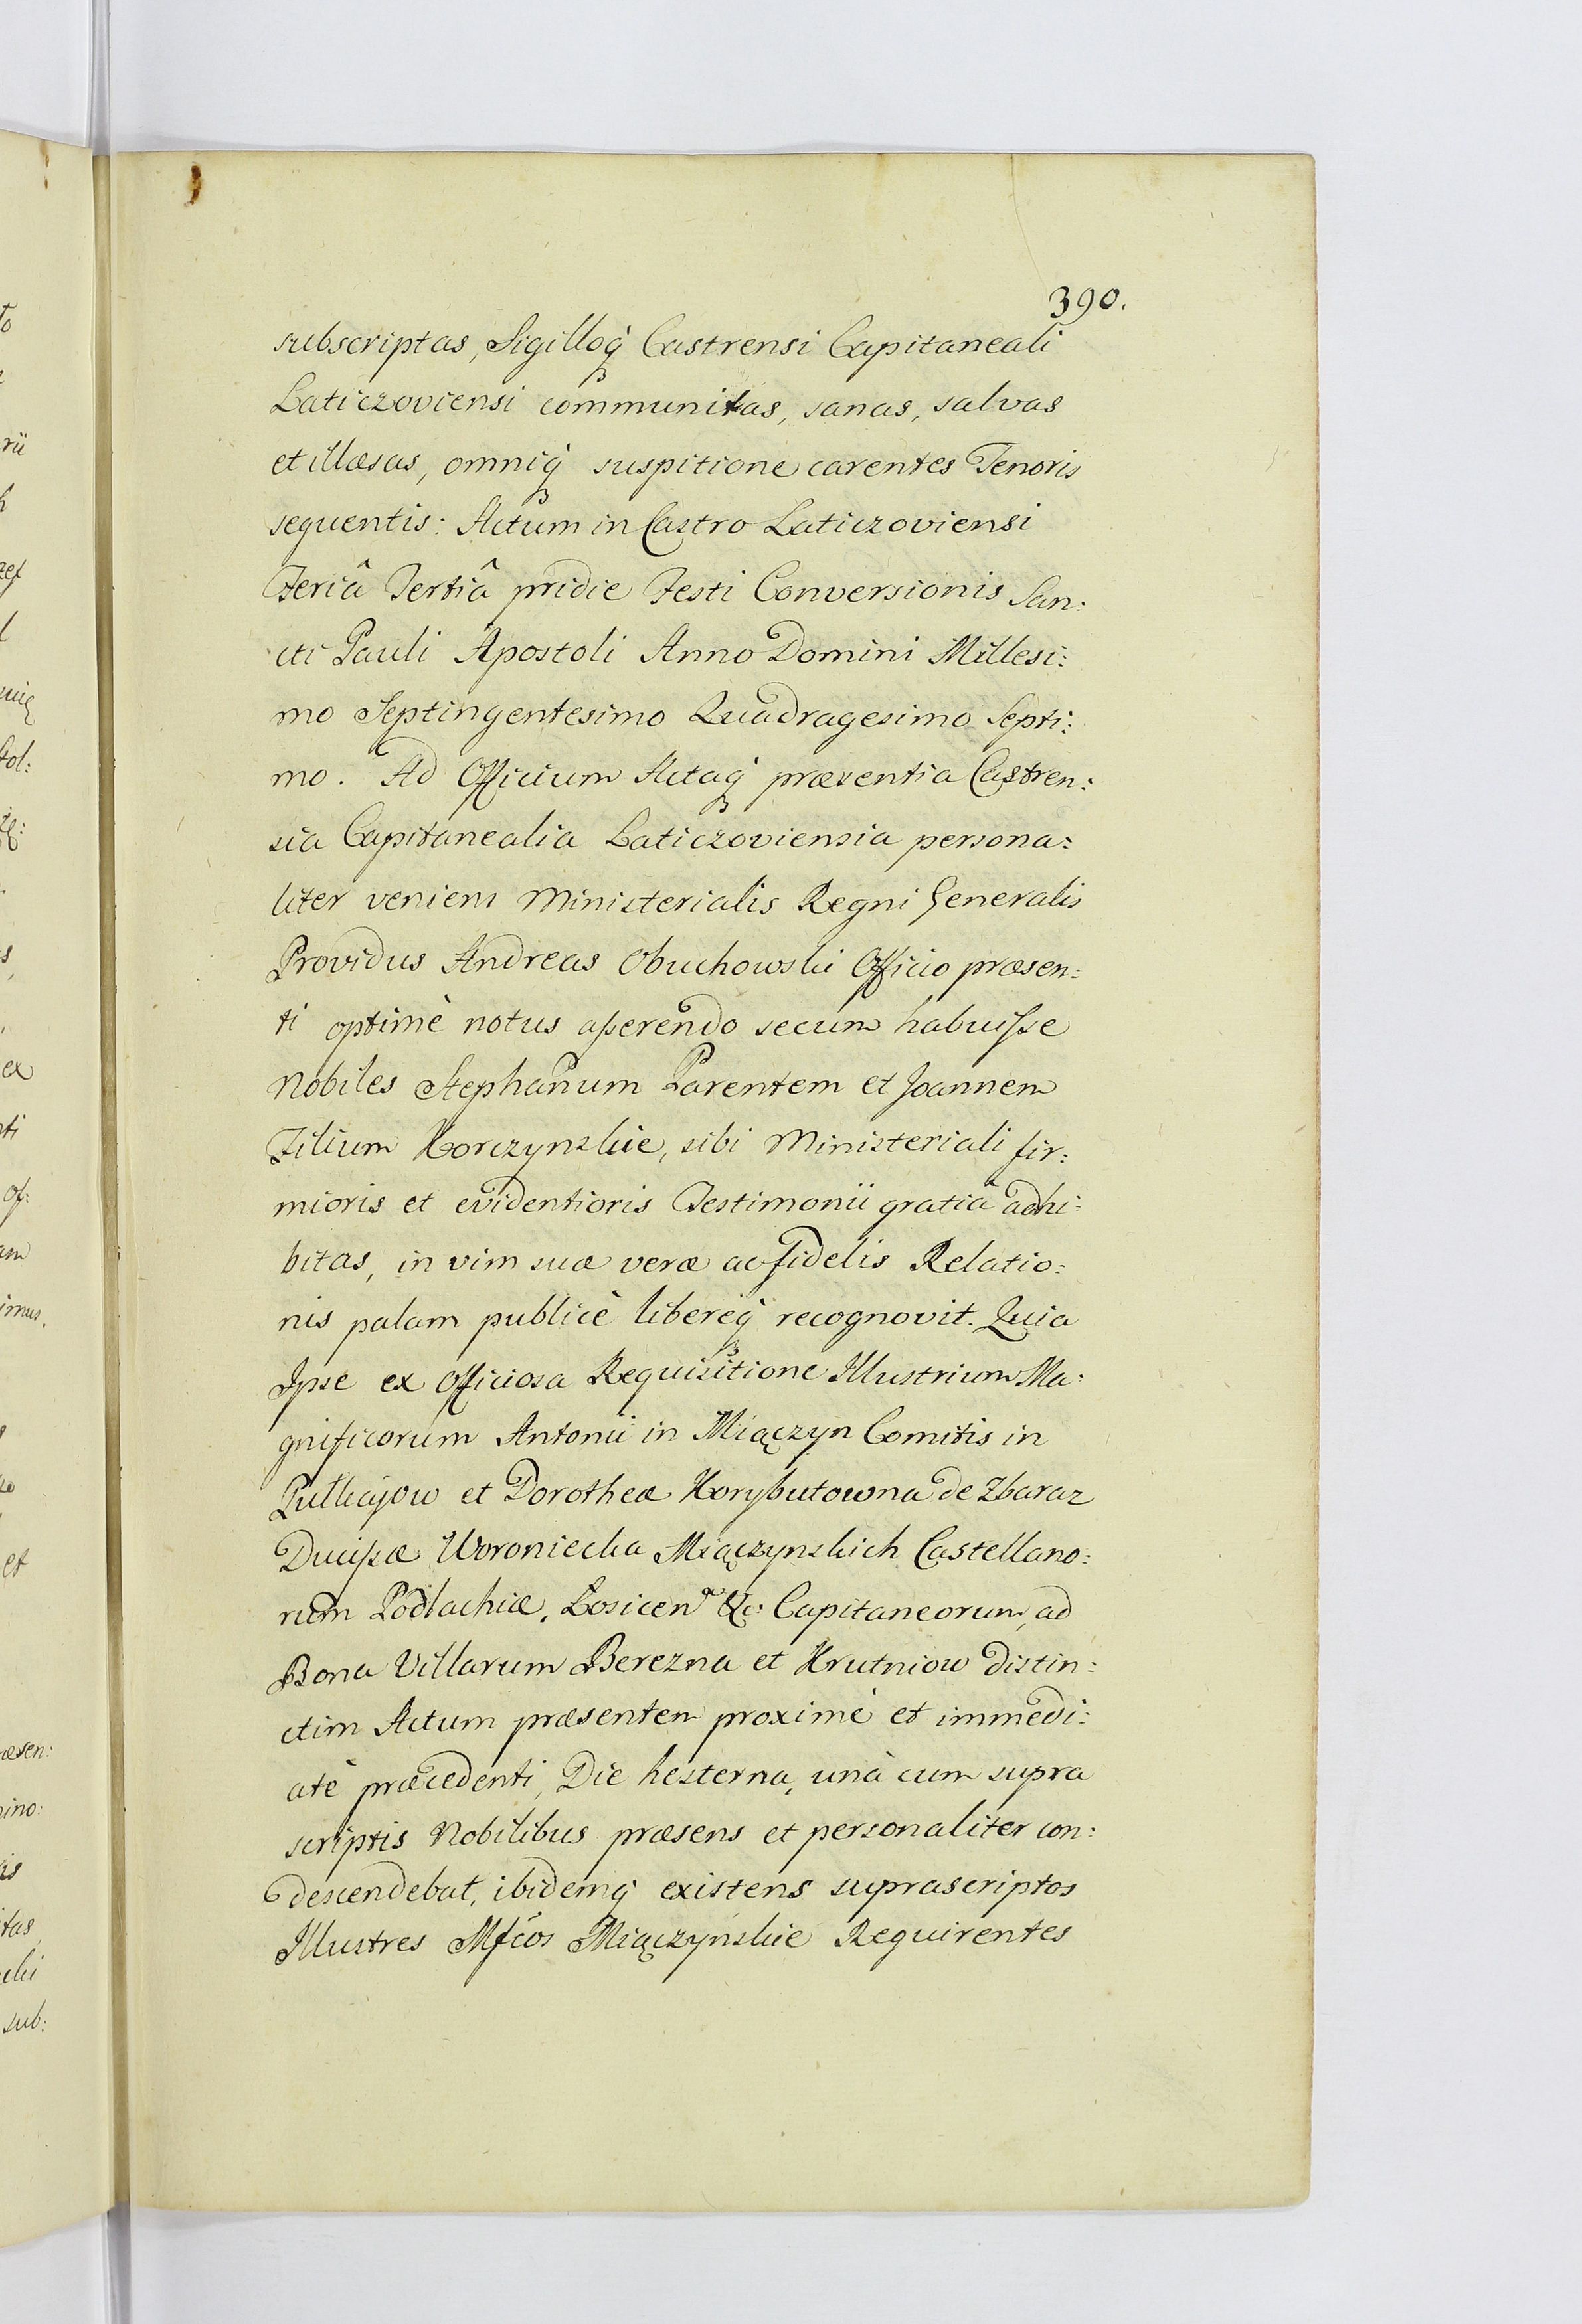 390.
subscriptas, Sigilloq̃ Castrensi Capitaneali
Laticzoviensi communitas, sanas, salvas
et illæsas, omniq̃ suspitione carentes Tenoris
sequentis: Actum in Castro Laticzoviensi
Feriâ Tertiâ pridie Festi Conversionis San:
cti Pauli Apostoli Anno Domini Millesi:
mo Septingentesimo Quadragesimo Septi:
mo. Ad Officium Actaq̃ præsentia Castren:
sia Capitanealia Laticzoviensia persona:
liter veniens Ministerialis Regni Generalis
Providus Andreas Obuchowski Officio præsen:
ti optimè notus asserendo secum habuisse
Nobiles Stephanum Parentem et Joannem
Filium Horczynskie, sibi Ministeriali fir:
mioris et evidentioris Testimonii gratiâ adhi:
bitas, in vim suæ veræ ac fidelis Relatio:
nis palam publicè libereq̃ recognovit. Quia
Ipse ex Officiosa Requisitione Illustrium Ma:
gnificorum Antonii in Miączyn Comitis in
Pulhajow et Dorotheæ Korybutowna de Zbaraz
Ducissæ Woroniecka Miączynskich Castellano:
rum Podlachiæ, Łosicen &c: Capitaneorum, ad
Bona Villarum Berezna et Hrutniow distin:
ctim Actum præsentem proximè et immedi:
atè præcedenti, Die hesterna, unà cum supra
scriptis Nobilibus præsens et personaliter con:
descendebat, ibidemq̃ existens suprascriptos
Illustres Mfcos Miączynskie Requirentes